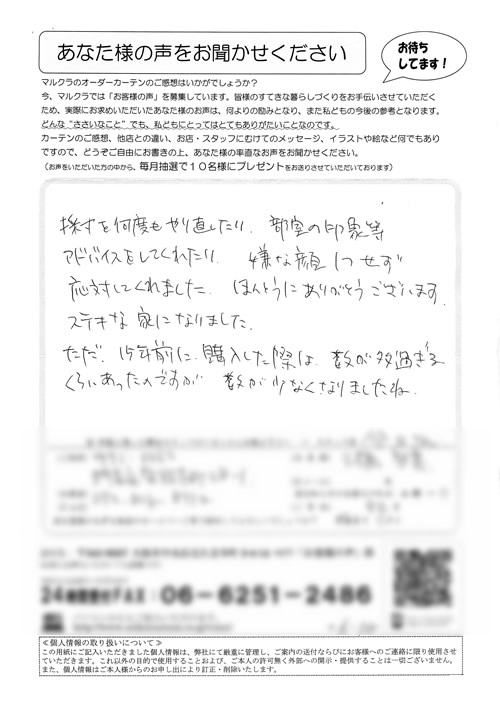 あなた様の声をお聞かせください
お待ち
してます!
マルクラのオーダーカーテンのご感想はいかがでしょうか?
今、マルクラでは「お客様の声」を募集しています。皆様のすてきな暮らしづくりをお手伝いさせていただく
ため、実際にお求めいただいたあなた様のお声は、何よりの励みとなり、また私どもの今後の参考となります。
どんな“ささいなこと”でも、私どもにとってはとてもありがたいことなのです。
カーテンのご感想、他店との違い、お店・スタッフにむけてのメッセージ、イラストや絵など何でもあり
ですので、どうぞご自由にお書きの上、あなた様の率直なお声をお聞かせください。
(お声をいただいた方の中から、毎月抽選で10名様にプレゼントをお送りさせていただいております)
採寸を何度もやり直したり、部室の印象等
アドバイスをしてくれたり、嫌な顔1つせず
応対してくれました。ほんとうにありがとうございます。
ステキな家になりました。
ただ、15年前に、購入した際は、数が多過ぎる
くらいあったのですが 数が少なくなりましたね。
24時間受付FAX:06-6251-2486
≪個人情報の取り扱いについて≫
この用紙にご記入いただきました個人情報は、弊社にて厳重に管理し、ご案内の送付ならびにお客様へのご連絡に限り使用させ
ていただきます。これ以外の目的で使用することおよび、ご本人の許可無く外部への開示・提供することは一切ございません。
また、個人情報はご本人様からのお申し出により訂正・削除いたします。